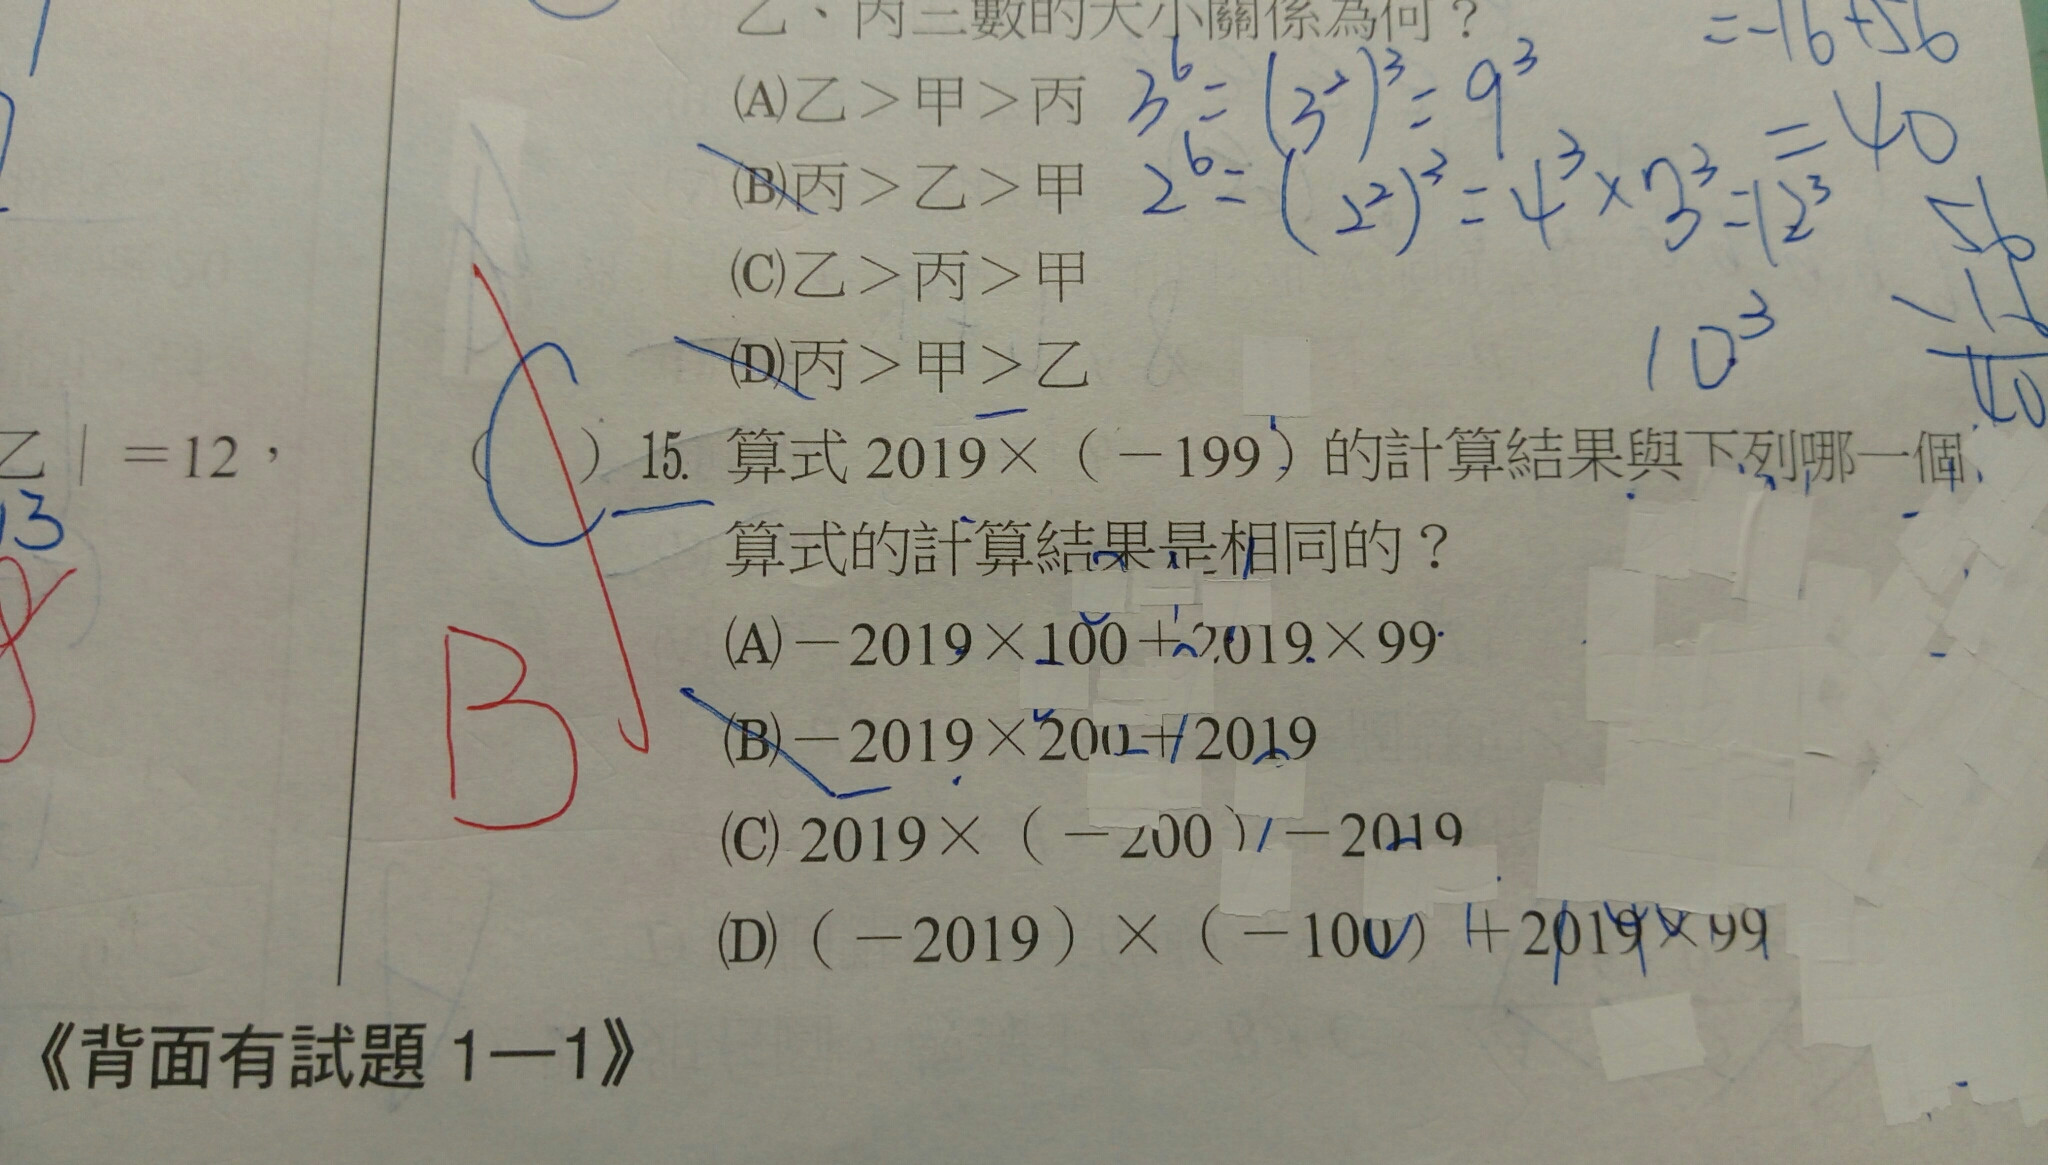 乙、丙三數的大小關係為何？
=-16+56
(A)乙＞甲＞丙
3⁶=(3²)³=9³
=40
(B)丙＞乙＞甲
2⁶=(2²)³=4³×3³=12³
(C)乙＞丙＞甲
56
-16
40
10³
(D)丙＞甲＞乙
乙｜＝12，
13
( C ) 15. 算式 2019×（－199）的計算結果與下列哪一個
算式的計算結果是相同的？
(A)－2019×100＋2019×99
B
(B)－2019×200＋2019
(C) 2019×（－200）－2019
(D)（－2019）×（－100）＋2019×99
《背面有試題 1—1》